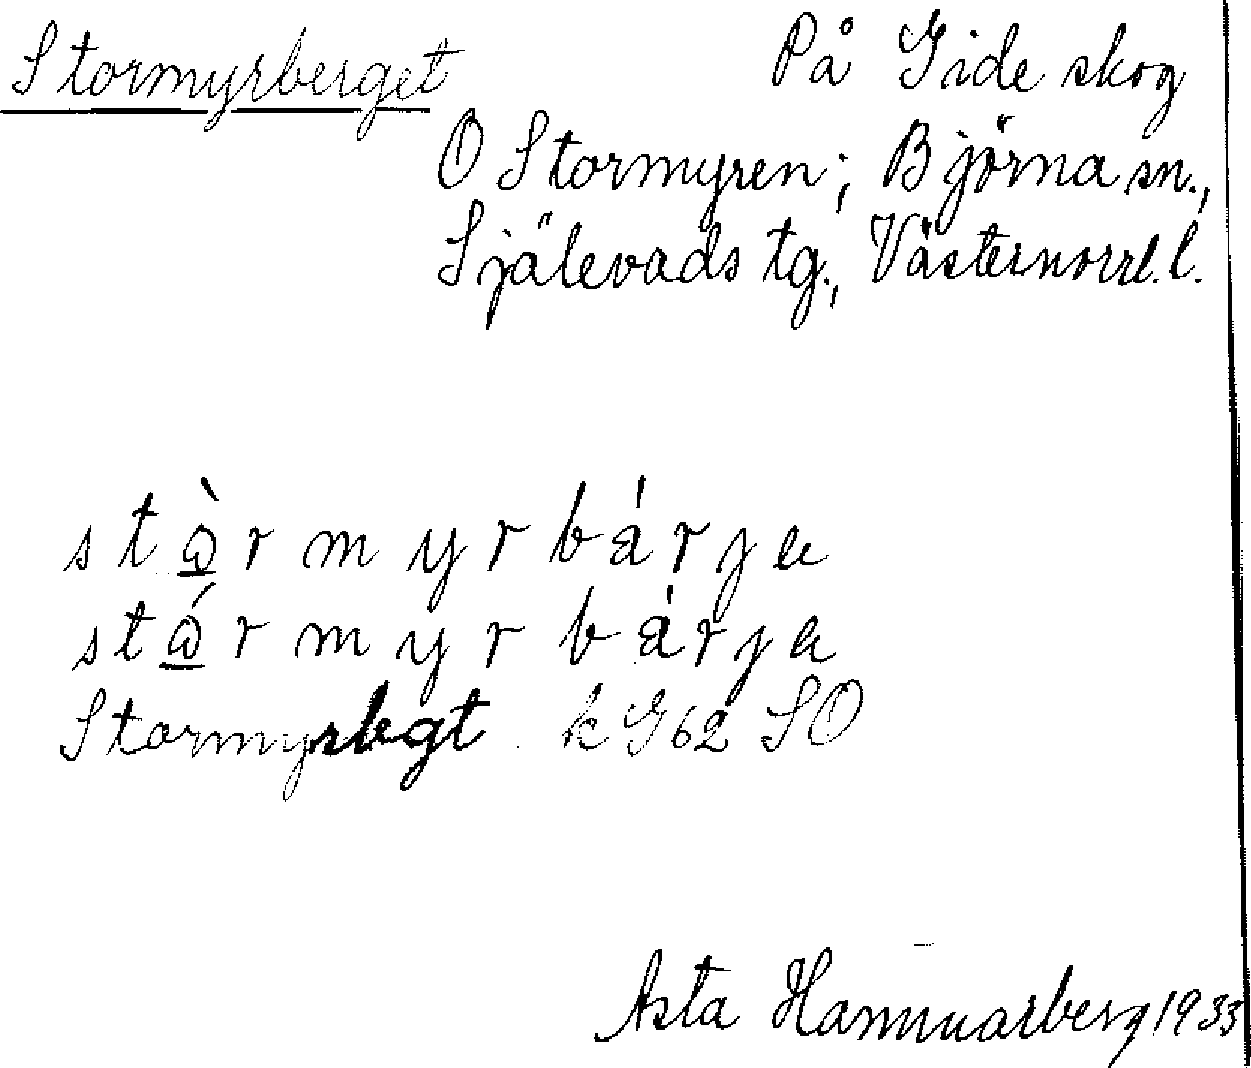 Stormyrberget På Gide skog
O Stormyren; Björna sn.,
Själevads tg., Västernorrl. l.
stὼ̲rmyrbárja
stώ̲rmyrbárja
Stormyrbgt k G62 SO
Asta Hammarberg 1933